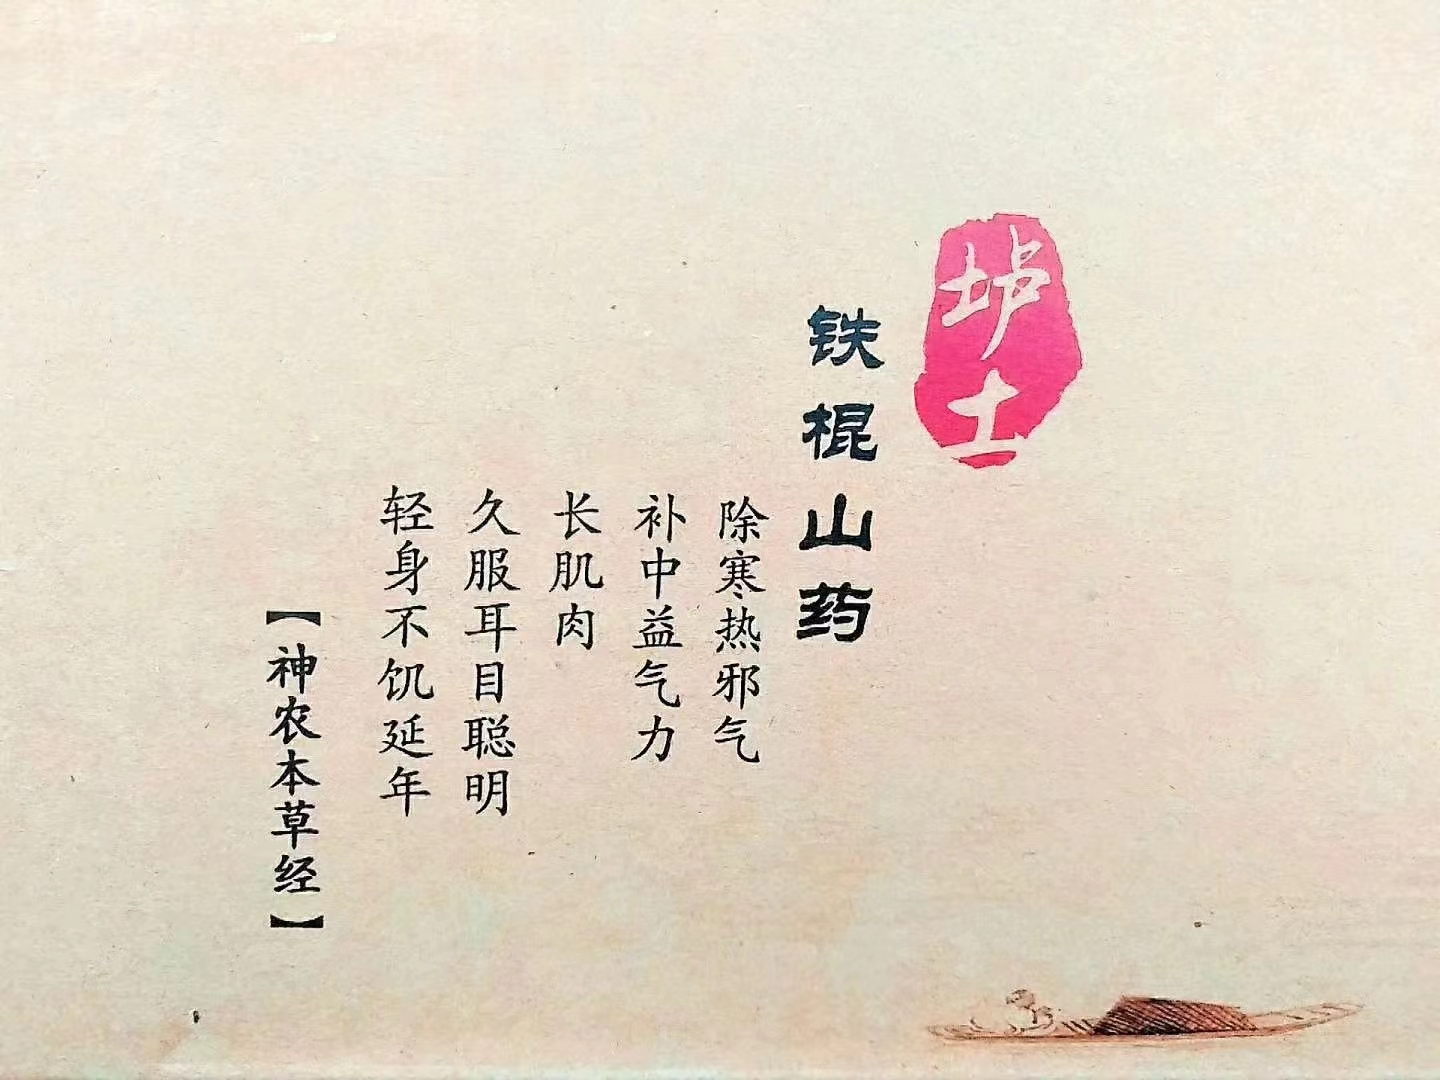 垆土
铁棍山药
除寒热邪气
补中益气力
长肌肉
久服耳目聪明
轻身不饥延年
【神农本草经】